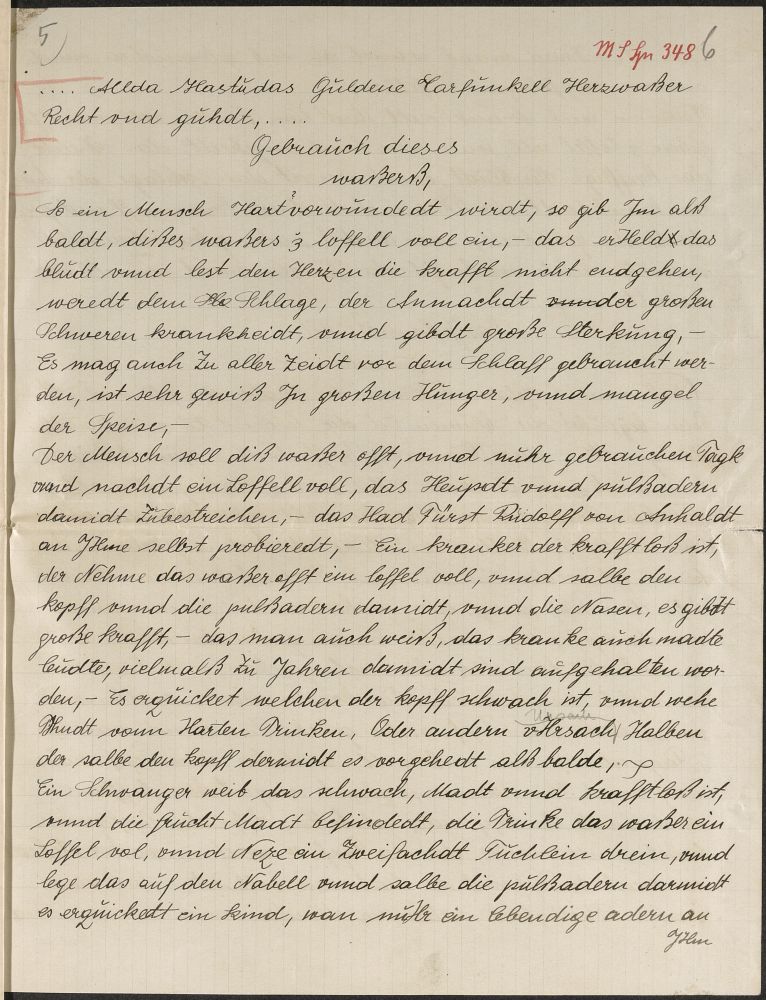 5)
MS Lpn 348 6
.... Allda Hastudas Guldene Carfunkell Herzwaßer
Recht vnd guhdt,....
Gebrauch dieses
waßerß,
So ein Mensch Hart vorwundedt wirdt, so gib Jm alß
?
baldt, dißes waßers 3 loffell voll ein,- das erHeldt das
bludt vnnd lest den Herzen die krafft nicht endgehen,
weredt dem Schlage, der Anmachdt vnnder großen
Schweren krankheidt, vnnd gibdt große Sterkung,-
Es mag auch Zu aller Zeidt vor dem Schlaff gebraucht wer-
den, ist sehr gewiß Jn großen Hunger, vnnd mangel
der Speise,-
Der Mensch soll diß waßer offt, vnnd nuhr gebrauchen Tagk
vnnd nachdt ein Loffell voll, das Heupdt vnnd pulßadern
damidt Zubestreichen,- das Had Fürst Rudolff von Anhaldt
an JHme selbst probieredt,- Ein kranker der krafftloß ist,
der Nehme das waßer offt ein loffel voll, vnnd salbe den
kopff vnnd die pulßadern damidt, vnnd die Nasen, es gibdt
große krafft,- das man auch weiß, das kranke auch madte
leudte, vielmalß Zu Jahren damidt sind aufgehalten wor-
den,- Es erquicket welchen der kopff schwach ist, vnnd wehe
Thudt vonn Harten Trinken, Oder andern vHrsach Halben
Ursach
der salbe den kopff dermidt es vorgehedt alß balde,
Ein Schwanger weib das schwach, Madt vnnd krafftloß ist,
vnnd die frucht Madt befindedt, die Trinke das waßer ein
Loffel vol, vnnd Neze ein Zweifachdt Tuchlein drein, vnnd
lege das auf den Nabell vnnd salbe die pulßadern darmidt
es erquickett ein kind, wan nuhr ein lebendige adern an
JHm